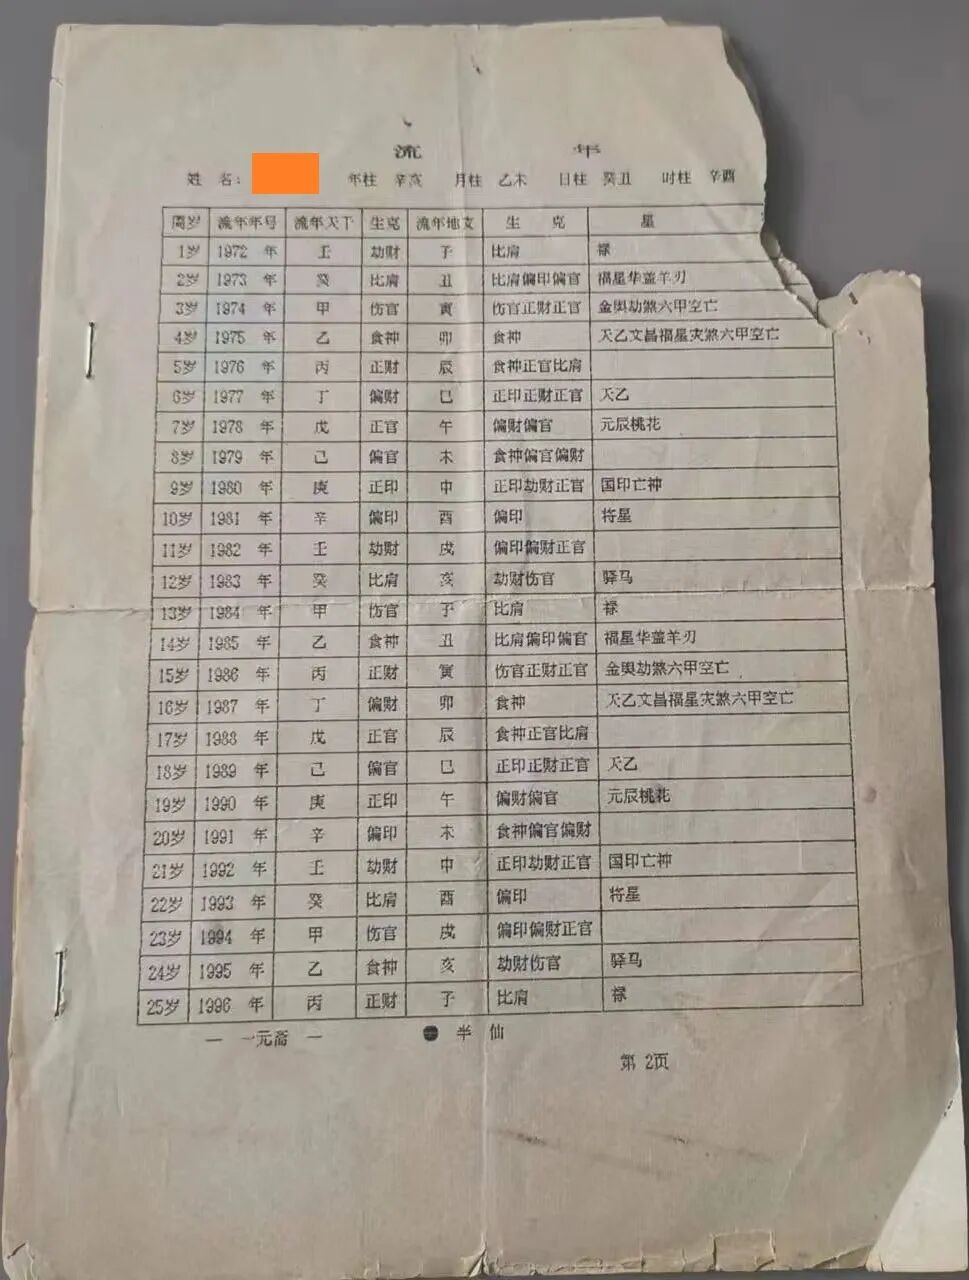 流 年
姓 名: 年柱 辛亥 月柱 乙未 日柱 癸丑 时柱 辛酉
周岁 流年年号 流年天干 生克 流年地支 生 克 星
1岁 1972 年 壬 劫财 子 比肩 禄
2岁 1973 年 癸 比肩 丑 比肩偏印偏官 福星华盖羊刃
3岁 1974 年 甲 伤官 寅 伤官正财正官 金舆劫煞六甲空亡
4岁 1975 年 乙 食神 卯 食神 天乙文昌福星灾煞六甲空亡
5岁 1976 年 丙 正财 辰 食神正官比肩
6岁 1977 年 丁 偏财 巳 正印正财正官 天乙
7岁 1978 年 戊 正官 午 偏财偏官 元辰桃花
8岁 1979 年 己 偏官 未 食神偏官偏财
9岁 1980 年 庚 正印 申 正印劫财正官 国印亡神
10岁 1981 年 辛 偏印 酉 偏印 将星
11岁 1982 年 壬 劫财 戌 偏印偏财正官
12岁 1983 年 癸 比肩 亥 劫财伤官 驿马
13岁 1984 年 甲 伤官 子 比肩 禄
14岁 1985 年 乙 食神 丑 比肩偏印偏官 福星华盖羊刃
15岁 1986 年 丙 正财 寅 伤官正财正官 金舆劫煞六甲空亡
16岁 1987 年 丁 偏财 卯 食神 天乙文昌福星灾煞六甲空亡
17岁 1988 年 戊 正官 辰 食神正官比肩
18岁 1989 年 己 偏官 巳 正印正财正官 天乙
19岁 1990 年 庚 正印 午 偏财偏官 元辰桃花
20岁 1991 年 辛 偏印 未 食神偏官偏财
21岁 1992 年 壬 劫财 申 正印劫财正官 国印亡神
22岁 1993 年 癸 比肩 酉 偏印 将星
23岁 1994 年 甲 伤官 戌 偏印偏财正官
24岁 1995 年 乙 食神 亥 劫财伤官 驿马
25岁 1996 年 丙 正财 子 比肩 禄
— 一元斋 — 半 仙
第 2页